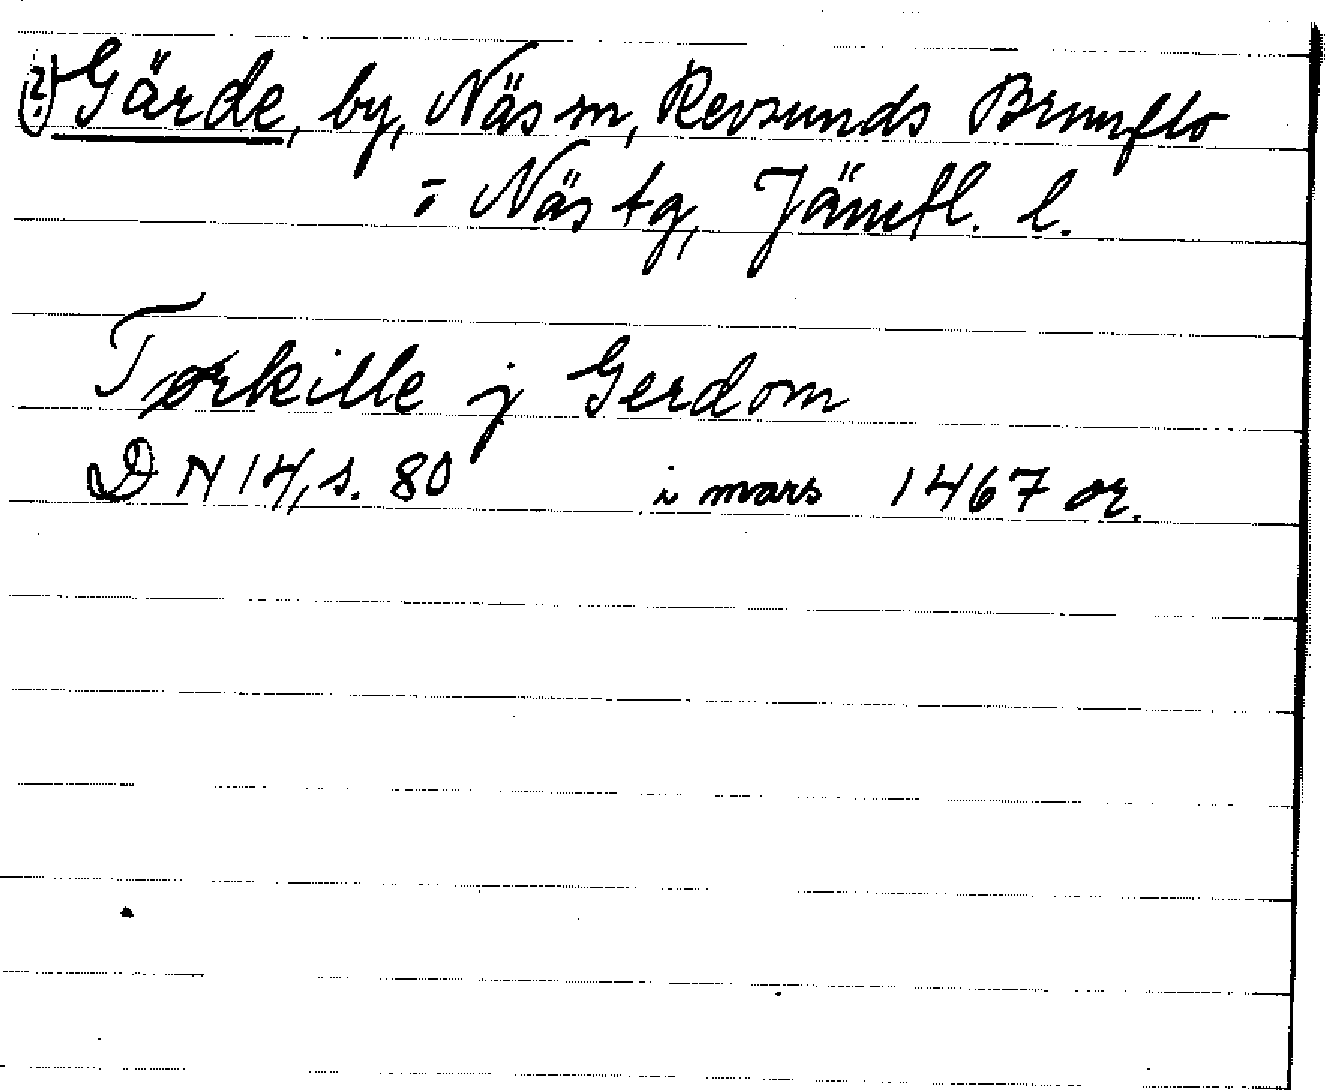 (?) Gärde, by, Näs sn, Revsunds Brunflo
o Näs tg, Jämtl. l.
Tørkille j Gerdom
DN 14, s. 80 i mars 1467 or.